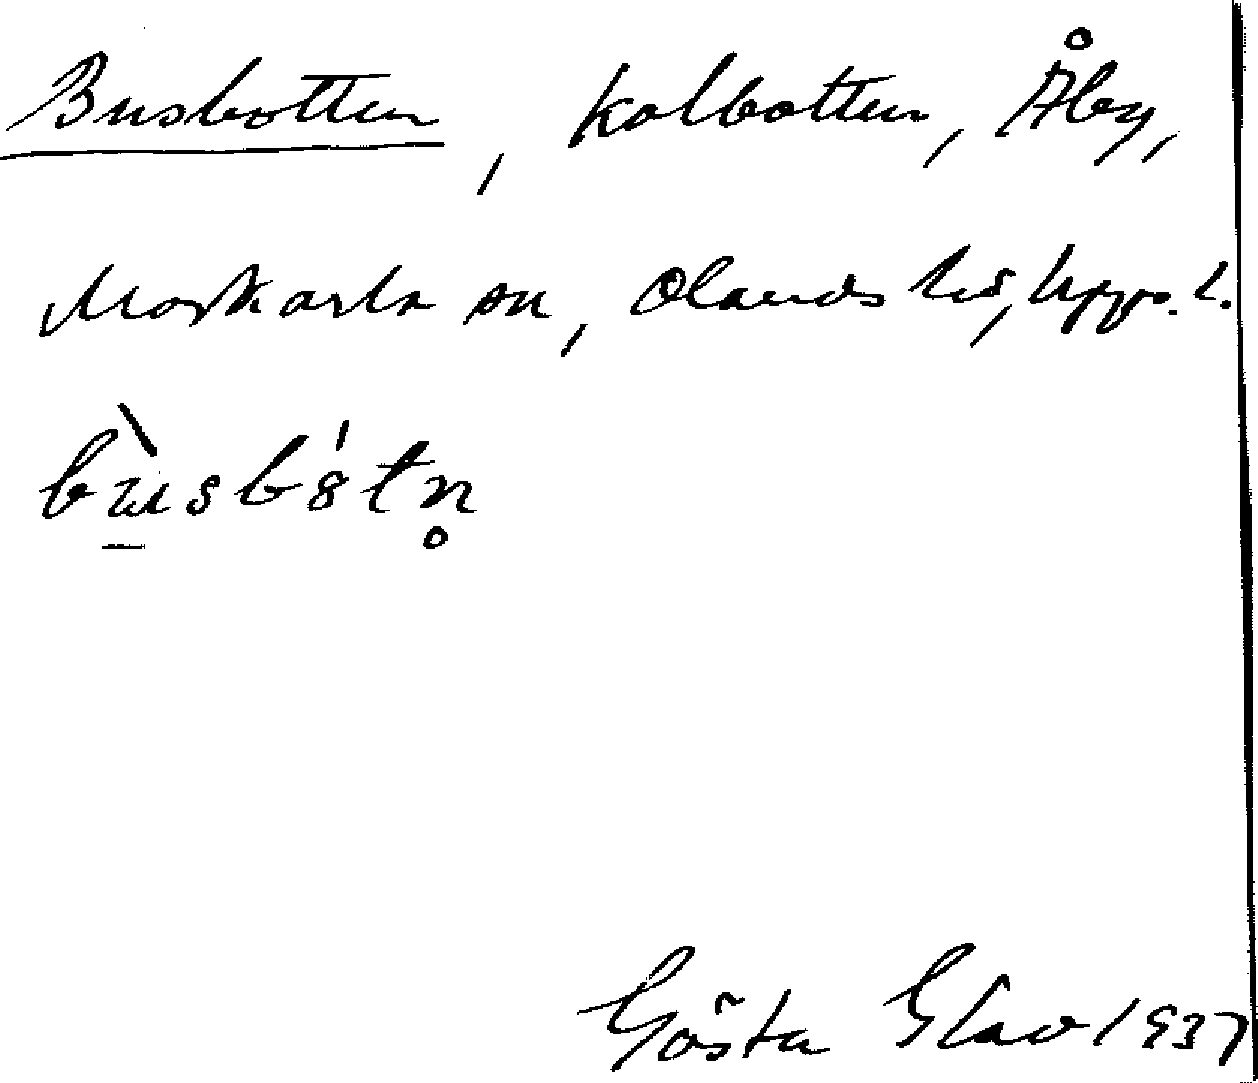 Busbotten, kolbotten, Åby,
Morkarla sn, Olands hd, Upps. l.
bùsbótn̥
Gösta Glav 1937